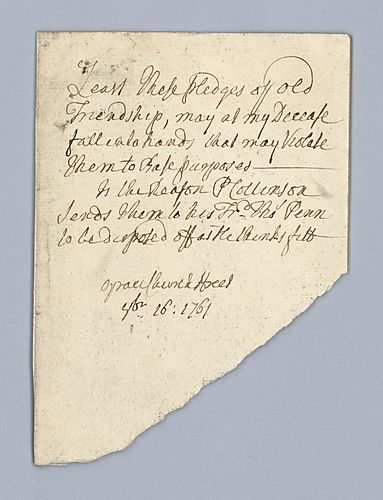 Least these pledges of old
Friendship, may at my Decease
fall into hands that may Violate
them to Base purposes
Is the Reason P Collinson
Sends them to his Frd Thos Penn
to be disposed off as He thinks fitt
Gracechurch Street
16: 1761